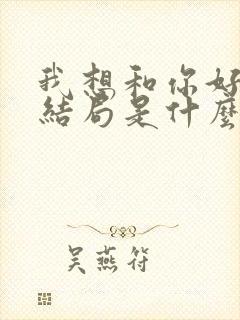 我想和你好
結局是什麼
吴燕符